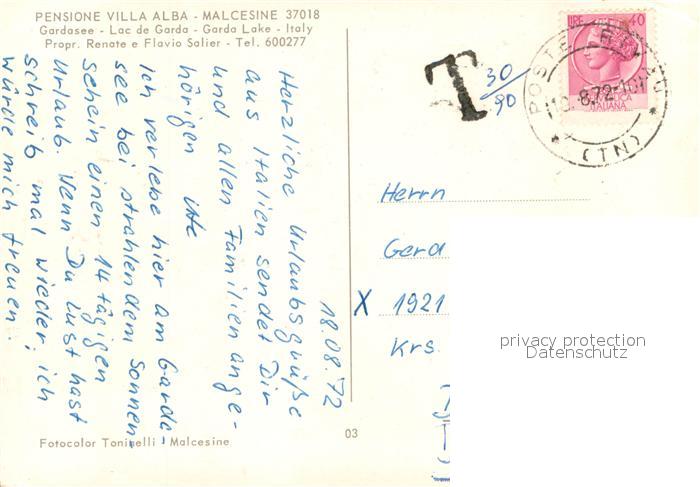 PENSIONE VILLA ALBA - MALCESINE 37018
Gardasee - Lac de Garda - Garda Lake - Italy
Propr. Renate e Flavio Salier - Tel. 600277
18.08.72
Herzliche Urlaubsgrüße
aus Italien sendet Dir
und allen Familienange-
hörigen Ute
Ich verlebe hier am Garda-
see bei strahlendem Sonnen-
schein einen 14 tägigen
Urlaub. Wenn Du Lust hast
schreib mal wieder, ich
würde mich freuen.
Fotocolor Toninelli - Malcesine
03
T
30
90
LIRE 40
POSTE
ITALIANA
8.72
(TN)
Herrn
Gerd
X 1921
Krs.
privacy protection
Datenschutz